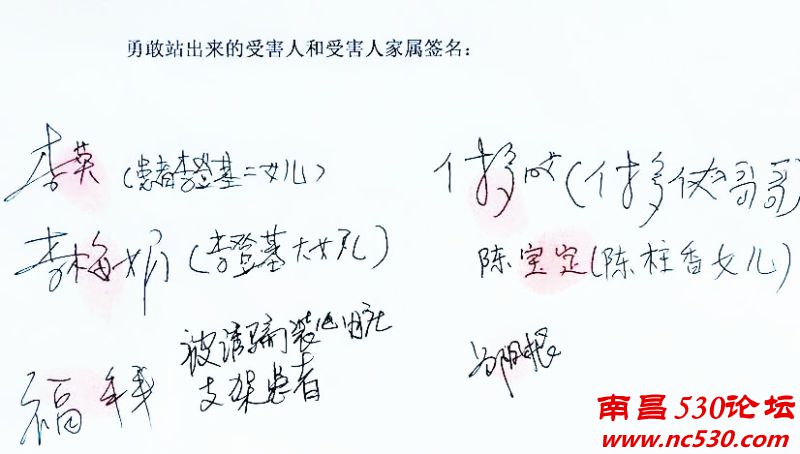 勇敢站出来的受害人和受害人家属签名：
李英（患者李登基二女儿）
李梅娟（李登基大女儿）
陈宝定（陈柱香女儿）
被诱骗装心脏
支架患者
福
哥哥）
南昌530论坛
www.nc530.com